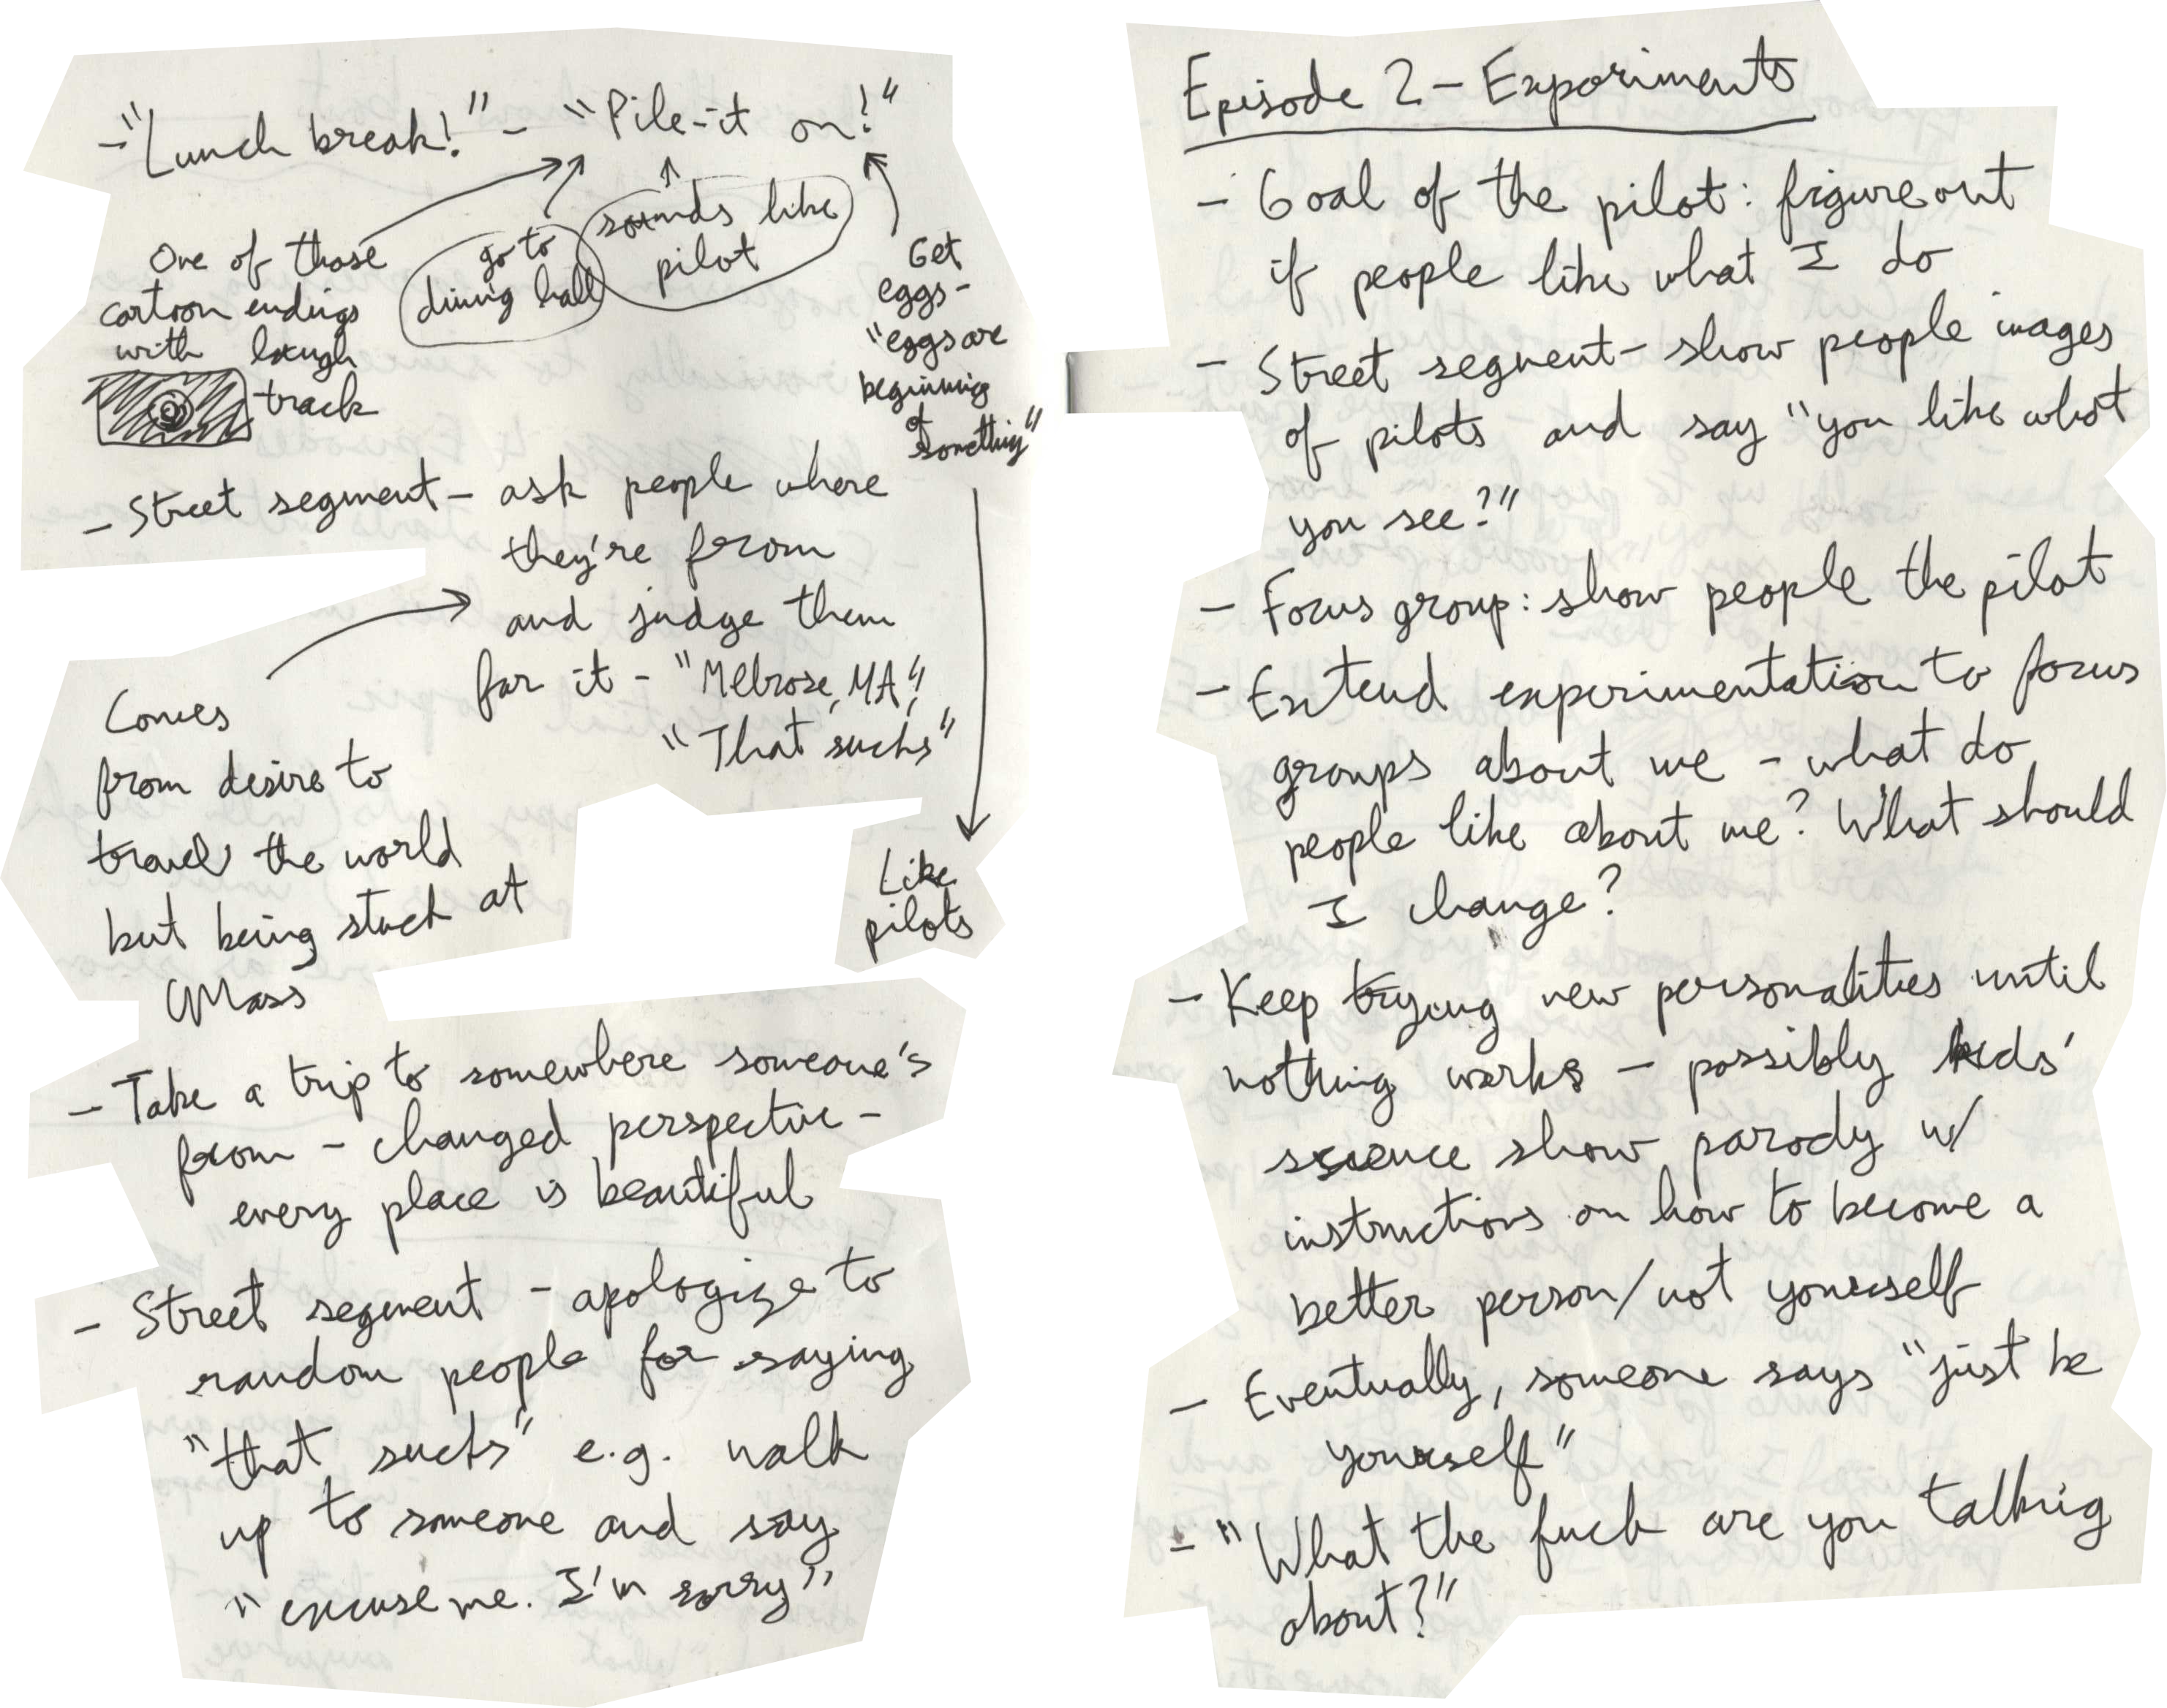 - "Lunch break!" - "Pile-it on!"
One of those
cartoon endings
with laugh
track
go to
dining hall
sounds like
pilot
Get
eggs -
"eggs are
beginning
of
something"
Like
pilots
- Street segment - ask people where
they're from
and judge them
for it - "Melrose, MA"
"That sucks"
Comes
from desire to
travel the world
but being stuck at
UMass
- Take a trip to somewhere someone's
from - changed perspective -
every place is beautiful
- Street segment - apologize to
random people for saying
"that sucks" e.g. walk
up to someone and say
"excuse me. I'm sorry"
Episode 2 - Experiments
- Goal of the pilot: figure out
if people like what I do
- Street segment - show people images
of pilots and say "you like what
you see?"
- Focus group: show people the pilot
- Extend experimentation to focus
groups about me - what do
people like about me? What should
I change?
- Keep trying new personalities until
nothing works - possibly kids'
science show parody w/
instructions on how to become a
better person/not yourself
- Eventually, someone says "just be
yourself"
- "What the fuck are you talking
about?"